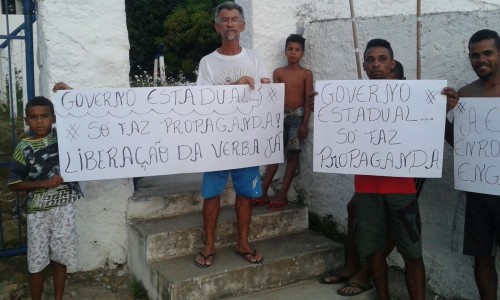 GOVERNO ESTADUAL...
* SÓ FAZ PROPAGANDA!
LIBERAÇÃO DA VERBA JÁ
GOVERNO *
ESTADUAL...
SÓ FAZ
PROPAGANDA